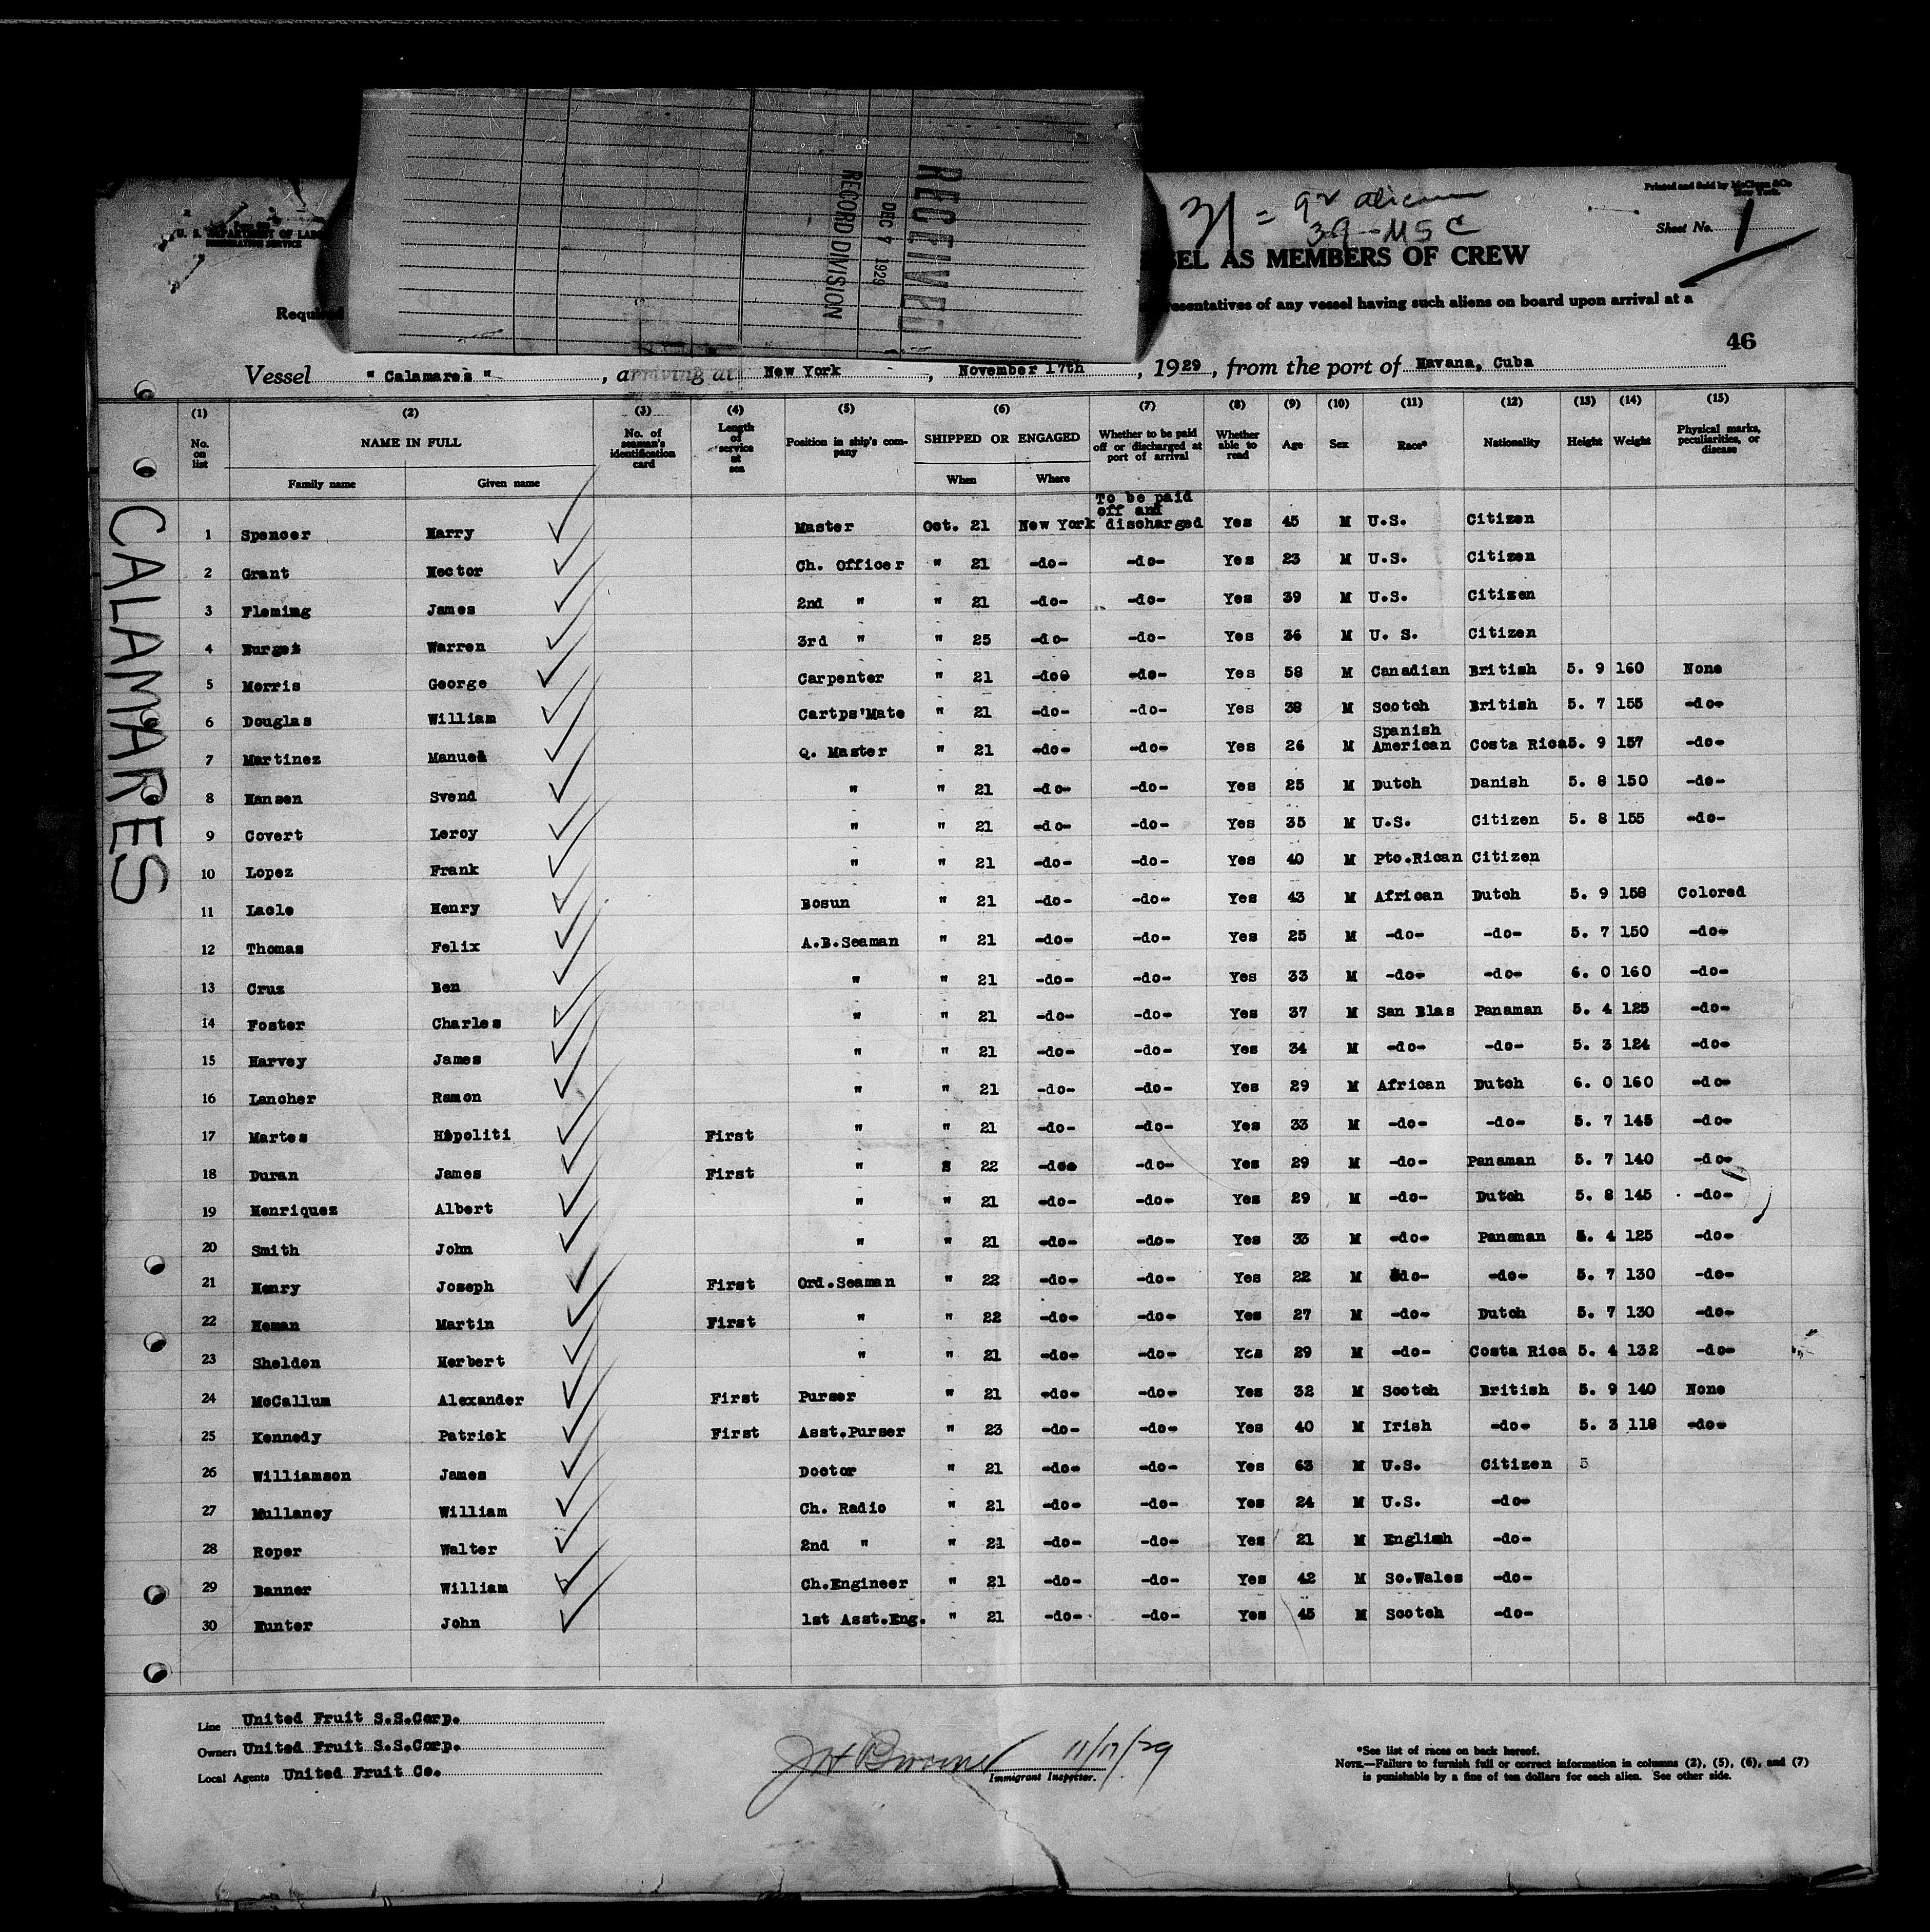 RECEIVED
DEC 7 1929
RECORD DIVISION
31 = 92 aliens
39 - USC
Printed and Sold by McClunn &Co
New York.
U. S. DEPARTMENT OF LABO
IMMIGRATION SERVICE
Sheet No. 1
SEL AS MEMBERS OF CREW
Required
resentatives of any vessel having such aliens on board upon arrival at a
46
Vessel " Calamares ", arriving at New York, November 17th, 1929, from the port of Havana, Cuba
CALAMARES
(1) (2) (3) (4) (5) (6) (7) (8) (9) (10) (11) (12) (13) (14) (15)
No. on list NAME IN FULL No. of seaman's identification card Length of service at sea Position in ship's company SHIPPED OR ENGAGED Whether to be paid off or discharged at port of arrival Whether able to read Age Sex Race* Nationality Height Weight Physical marks, peculiarities, or disease
Family name Given name When Where
1 Spencer Harry Master Oct. 21 New York To be paid off and discharged Yes 45 M U.S. Citizen
2 Grant Hector Ch. Officer " 21 -do- -do- Yes 23 M U.S. Citizen
3 Fleming James 2nd " " 21 -do- -do- Yes 39 M U.S. Citizen
4 Warren 3rd " " 25 -do- -do- Yes 36 M U. S. Citizen
5 Morris George Carpenter " 21 -do- -do- Yes 58 M Canadian British 5. 9 160 None
6 Douglas William Cartps'Mate " 21 -do- -do- Yes 38 M Scotch British 5. 7 155 -do-
7 Martinez Manuel Q. Master " 21 -do- -do- Yes 26 M Spanish American Costa Rica 5. 9 157 -do-
8 Hansen Svend " " 21 -do- -do- Yes 25 M Dutch Danish 5. 8 150 -do-
9 Covert Leroy " " 21 -do- -do- Yes 35 M U.S. Citizen 5. 8 155 -do-
10 Lopez Frank " " 21 -do- -do- Yes 40 M Pto.Rican Citizen
11 Lacle Henry Bosun " 21 -do- -do- Yes 43 M African Dutch 5. 9 158 Colored
12 Thomas Felix A.B.Seaman " 21 -do- -do- Yes 25 M -do- -do- 5. 7 150 -do-
13 Cruz Ben " " 21 -do- -do- Yes 33 M -do- -do- 6. 0 160 -do-
14 Foster Charles " " 21 -do- -do- Yes 37 M San Blas Panaman 5. 4 125 -do-
15 Harvey James " " 21 -do- -do- Yes 34 M -do- -do- 5. 3 124 -do-
16 Lancher Ramon " " 21 -do- -do- Yes 29 M African Dutch 6. 0 160 -do-
17 Martes Hipoliti First " " 21 -do- -do- Yes 33 M -do- -do- 5. 7 145 -do-
18 Duran James First " " 22 -do- -do- Yes 29 M -do- Panaman 5. 7 140 -do-
19 Henriquez Albert " " 21 -do- -do- Yes 29 M -do- Dutch 5. 8 145 -do-
20 Smith John " " 21 -do- -do- Yes 33 M -do- Panaman 5. 4 125 -do-
21 Henry Joseph First Ord.Seaman " 22 -do- -do- Yes 22 M -do- -do- 5. 7 130 -do-
22 Heman Martin First " " 22 -do- -do- Yes 27 M -do- Dutch 5. 7 130 -do-
23 Sheldon Herbert " " 21 -do- -do- Yes 29 M -do- Costa Rica 5. 4 132 -do-
24 McCallum Alexander First Purser " 21 -do- -do- Yes 32 M Scotch British 5. 9 140 None
25 Kennedy Patrick First Asst.Purser " 23 -do- -do- Yes 40 M Irish -do- 5. 3 118 -do-
26 Williamson James Doctor " 21 -do- -do- Yes 63 M U.S. Citizen 5
27 Mullaney William Ch. Radio " 21 -do- -do- Yes 24 M U.S. -do-
28 Roper Walter 2nd " " 21 -do- -do- Yes 21 M English -do-
29 Banner William Ch.Engineer " 21 -do- -do- Yes 42 M So.Wales -do-
30 Hunter John 1st Asst.Eng. " 21 -do- -do- Yes 45 M Scotch -do-
Line United Fruit S.S.Corp.
Owners United Fruit S.S.Corp.
Local Agents United Fruit Co.
11/17/29
Immigrant Inspector.
*See list of races on back hereof.
NOTE.—Failure to furnish full or correct information in columns (2), (5), (6), and (7)
is punishable by a fine of ten dollars for each alien. See other side.